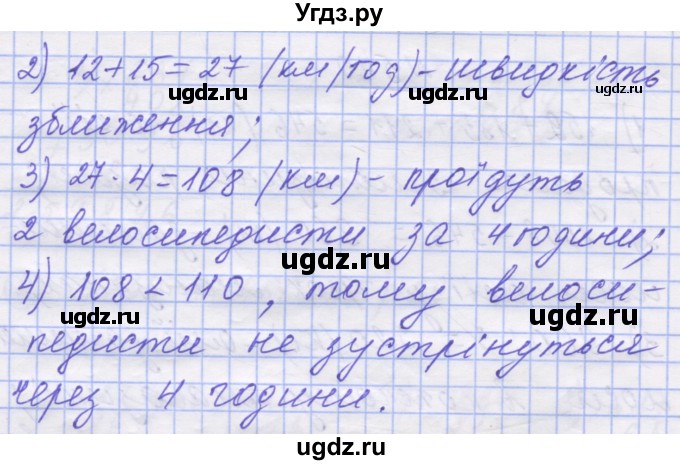 Угдз.ру
2) 12+15=27 (км/год) - швидкість
зближення;
3) 27·4=108 (км) - проїдуть
2 велосипедисти за 4 години;
4) 108 < 110, тому велоси-
педисти не зустрінуться
через 4 години.
ugdz.ru
ugdz.ru
ugdz.ru
ugdz.ru
ugdz.ru
ugdz.ru
ugdz.ru
ugdz.ru
ugdz.ru